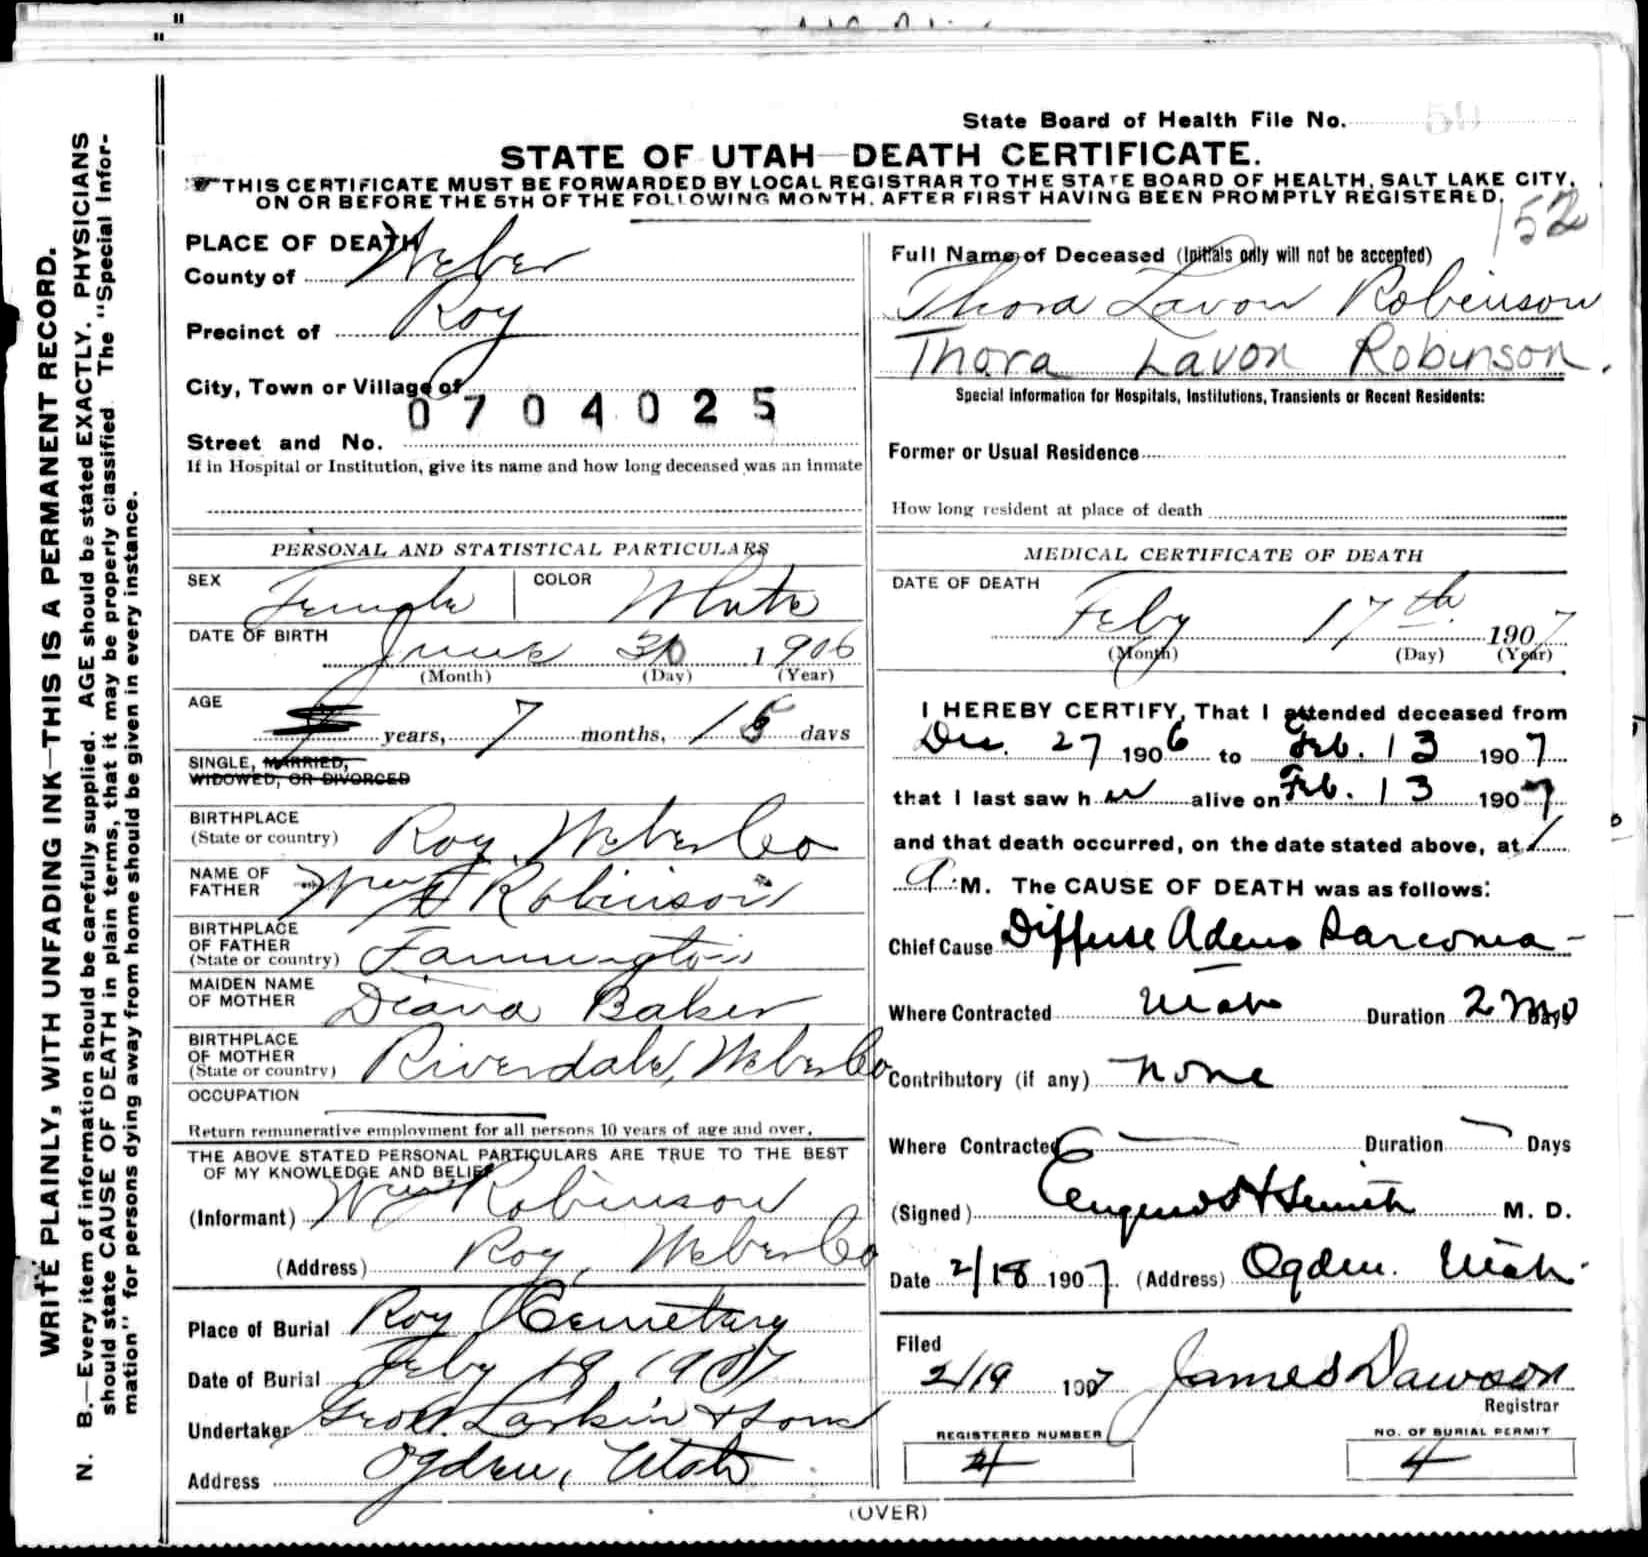 WRITE PLAINLY, WITH UNFADING INK—THIS IS A PERMANENT RECORD.
N. B.—Every item of information should be carefully supplied. AGE should be stated EXACTLY. PHYSICIANS
should state CAUSE OF DEATH in plain terms, that it may be properly classified. The "Special Infor-
mation" for persons dying away from home should be given in every instance.
State Board of Health File No.
STATE OF UTAH—DEATH CERTIFICATE.
THIS CERTIFICATE MUST BE FORWARDED BY LOCAL REGISTRAR TO THE STATE BOARD OF HEALTH, SALT LAKE CITY,
ON OR BEFORE THE 5TH OF THE FOLLOWING MONTH, AFTER FIRST HAVING BEEN PROMPTLY REGISTERED.
152
PLACE OF DEATH
County of Weber
Precinct of Roy
City, Town or Village of
0704025
Street and No.
If in Hospital or Institution, give its name and how long deceased was an inmate
Full Name of Deceased (Initials only will not be accepted)
Thora Lavon Robinson
Thora Lavon Robinson.
Special Information for Hospitals, Institutions, Transients or Recent Residents:
Former or Usual Residence
How long resident at place of death
PERSONAL AND STATISTICAL PARTICULARS
SEX Female COLOR White
DATE OF BIRTH June 30 1906
(Month) (Day) (Year)
AGE years, 7 months, 15 days
SINGLE, MARRIED,
WIDOWED, OR DIVORCED
BIRTHPLACE
(State or country) Roy, Weber Co
NAME OF
FATHER Robinson
BIRTHPLACE
OF FATHER
(State or country) Farmington
MAIDEN NAME
OF MOTHER Diana Baker
BIRTHPLACE
OF MOTHER
(State or country) Riverdale, Weber Co
OCCUPATION
Return remunerative employment for all persons 10 years of age and over.
THE ABOVE STATED PERSONAL PARTICULARS ARE TRUE TO THE BEST
OF MY KNOWLEDGE AND BELIEF
(Informant) Wm Robinson
(Address) Roy, Weber Co
Place of Burial Roy Cemetary
Date of Burial Feby 19 1907
Undertaker Larkin & Sons
Address Ogden, Utah
MEDICAL CERTIFICATE OF DEATH
DATE OF DEATH
Feby 17th 1907
(Month) (Day) (Year)
I HEREBY CERTIFY, That I attended deceased from
Dec. 27 1906 to Feb. 13 1907
that I last saw her alive on Feb. 13 1907
and that death occurred, on the date stated above, at 1
A M. The CAUSE OF DEATH was as follows:
Chief Cause Diffuse Adeno Sarcoma
Where Contracted Utah Duration 2 Mo Days
Contributory (if any) None
Where Contracted Duration Days
(Signed) Eugene H Smith M. D.
Date 2/18 1907. (Address) Ogden. Utah.
Filed
2/19 1907 James Dawson
Registrar
REGISTERED NUMBER NO. OF BURIAL PERMIT
4 4
(OVER)